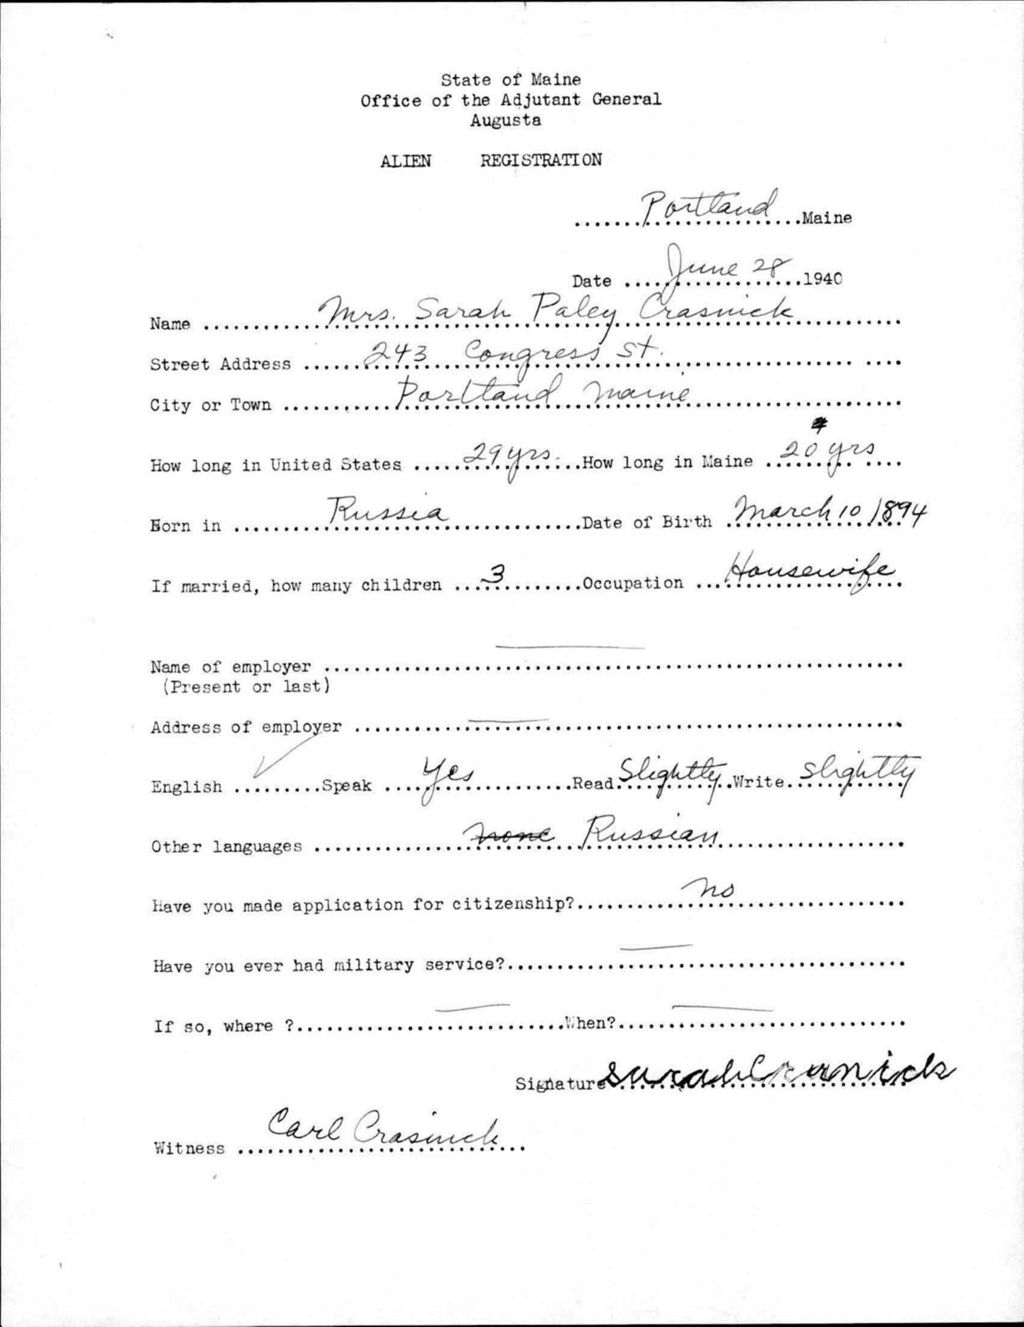 State of Maine
Office of the Adjutant General
Augusta
ALIEN REGISTRATION
.......Portland...Maine
Date ....June 28....1940
Name ............Mrs. Sarah Paley Crasnick............
Street Address ......243 Congress St. ..................
City or Town ............Portland Maine..................
How long in United States ......29 yrs. ...How long in Maine ..20 yrs....
Born in ..........Russia................Date of Birth .March 10 1894
If married, how many children ...3.........Occupation ...Housewife
Name of employer ............——............
(Present or last)
Address of employer ............——............
English ....✓.....Speak ....Yes............Read Slightly..Write. slightly
Other languages ...............none Russian..................
Have you made application for citizenship?...........no..................
Have you ever had military service?............——............
If so, where ?............——............When?......——............
Signature Sarah Crasnick
Witness ...Carl Crasnick...